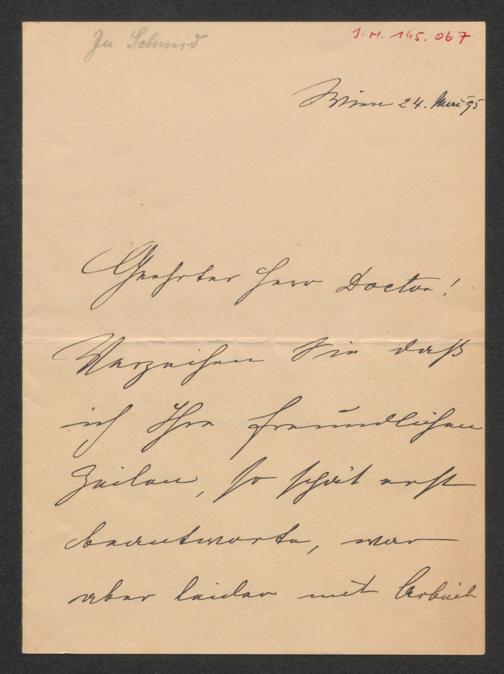 Zu Schmid
J. N. 145.067
Wien 24. Mai 95
Geehrter Herr Doctor!
Verzeihen Sie daß
ich Ihre freundlichen
Zeilen, so spät erst
beantworte, war
aber leider mit Arbeit